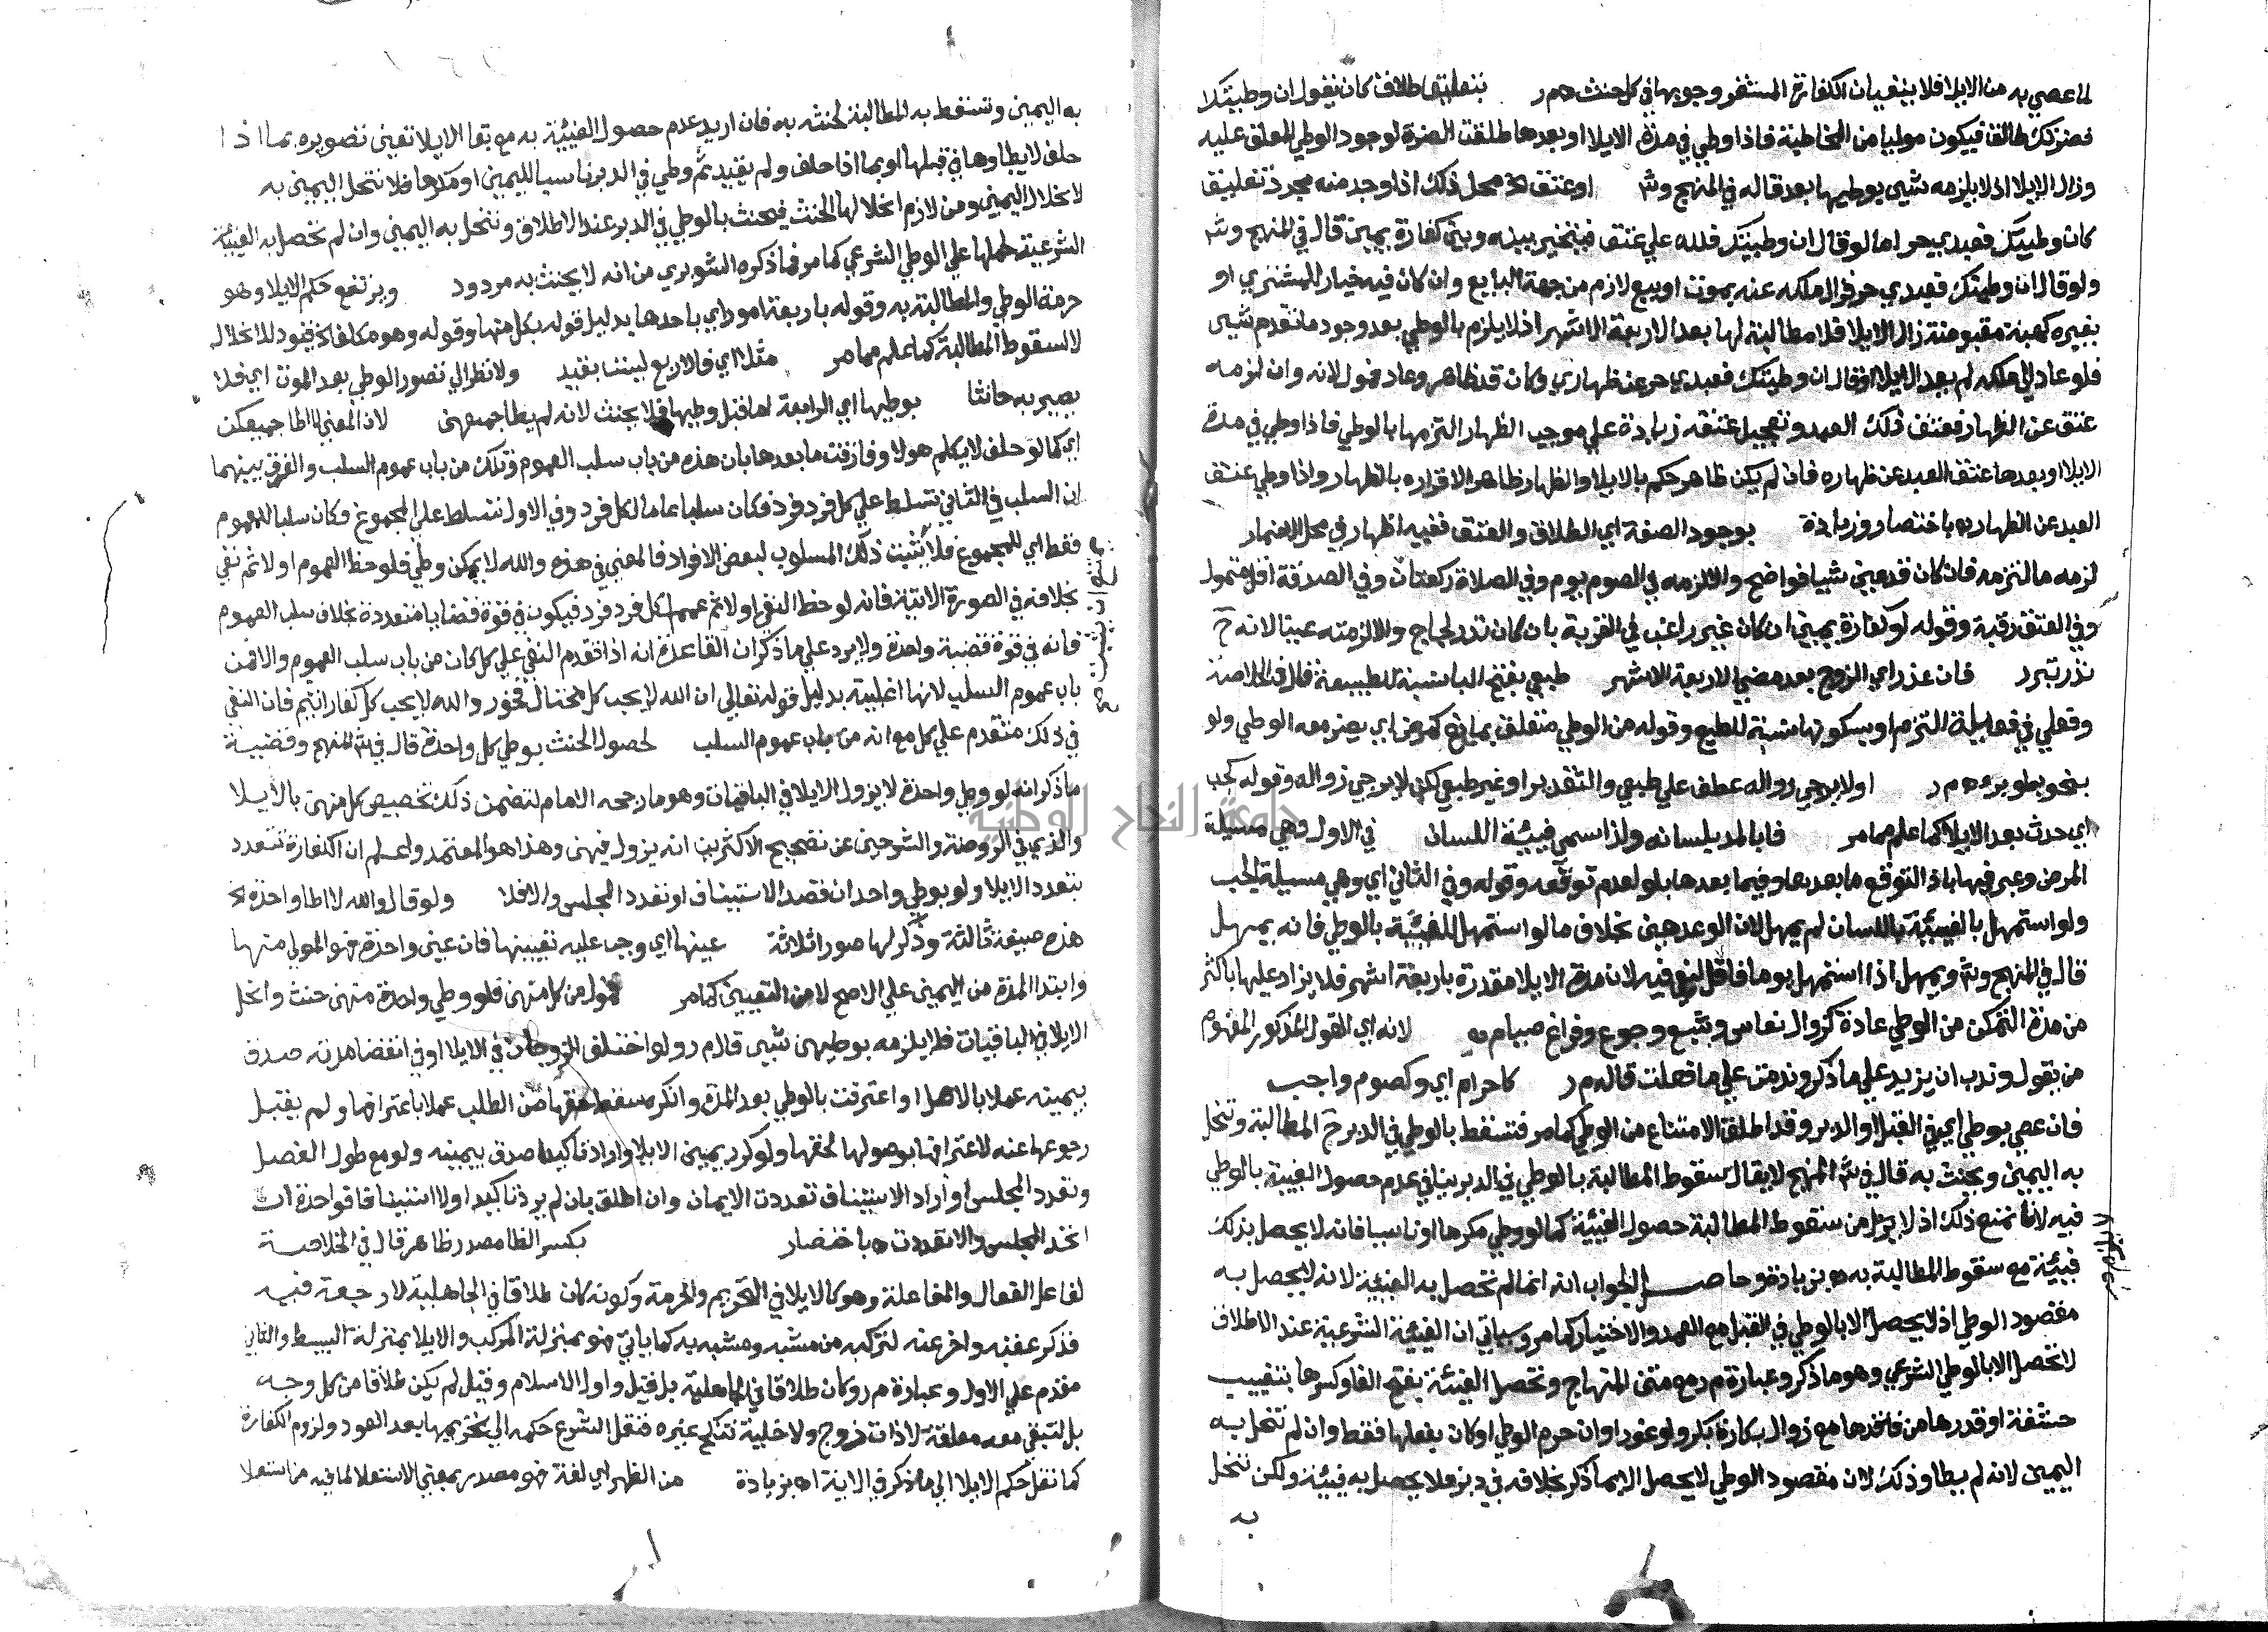 لما عصي به من الايلا فلا ينفيان الكفارة المستقر وجوبها في كل حنث ه م ر بتعليق طلاق كان يقول ان وطيتك
فضرتك طالق فيكون موليا من المخاطبة فاذا وطي في مدة الايلا او بعدها طلقت الضرة لوجود الوطي المعلق عليه
وزال الايلا اذ لا يلزمه شي بوطيها بعد قاله في المنهج وش او عتق الخ محل ذلك اذا وجد منه مجرد تعليق
كان وطيتك فعبدي حر اما لو قال ان وطيتك فلله علي عتق فيتخير بينه وبين كفارة يمين قال في المنهج وش
ولو قال ان وطيتك فعبدي حر فزال ملكه عنه بموت او بيع لازم من جهة البايع وان كان فيه خيار للمشتري او
بغيره كهبة مقبوضة زال الايلا فلا مطالبة لها بعد الاربعة الاشهر اذ لا يلزم بالوطي بعد وجود ما تقدم شي
فلو عاد الي ملكه لم يعد الايلا او قال ان وطيتك فعبدي حر عن ظهاري وكان قد ظاهر وعاد فمول لانه وان لزمه
عتق عن الظهار فعتق ذلك العبد وتعجيل عتقه زيادة علي موجب الظهار التزمها بالوطي فاذا وطي في مدة
الايلا او بعدها عتق العبد عن ظهاره فان لم يكن ظاهر حكم بالايلا والظهار ظاهرا لاقراره بالظهار واذا وطي عتق
العبد عن الظهار ه باختصار وزيادة بوجود الصفة اي الطلاق والعتق ففيه اظهار في محل الاضمار
لزمه ما التزمه فان كان قد عين شيا فواضح والا لزمه في الصوم يوم وفي الصلاة ركعتان وفي الصدقة اقل متمول
وفي العتق رقبة وقوله او كفارة يمين ان كان غير راغب في القربة بان كان نذر لجاج والا لزمته عينا لانه ح
نذر تبرر فان عذر اي الزوج بعد مضي الاربعة الاشهر طبعي بفتح الباء نسبة للطبيعة قال في الخلاصة
وفعلي في فعيلة التزم او بسكونها نسبة للطبع وقوله من الوطي متعلق بمانع كمرض اي يضر معه الوطي ولو
بنحو بطو برء ه م ر او لا يرجي زواله عطف علي طبعي والتقدير او غير طبعي لكن لا يرجي زواله وقوله كجب
اي حدث بعد الايلا كما علم مما مر فا بالمد بلسانه ولذا سمي فيئة اللسان في الاول وهي مسيلة
المرض وعبر فيها باذا لتوقع ما بعدها وفيما بعدها بلو لعدم توقعه وقوله وفي الثاني اي وهي مسيلة الجب
ولو استمهل بالفيئة باللسان لم يمهل لان الوعد هين بخلاف ما لو استمهل للفيئة بالوطي فانه يمهل
قال في المنهج وش ويمهل اذا استمهل يوما فاقل ليفي فيه لان مدة الايلا مقدرة باربعة اشهر فلا يزاد عليها باكثر
من مدة التمكن من الوطي عادة كزوال نعاس وشبع وجوع وفراغ صيام ه لانه اي القول المذكور المفهوم
من يقول وندب ان يزيد علي ما ذكر وندمت علي ما فعلت قاله م ر كاحرام اي وكصوم واجب
فان عصي بوطي اي في القبل او الدبر وقد اطلق الامتناع من الوطي كما مر فتسقط بالوطي في الدبر ح المطالبة وتنحل
به اليمين ويحنث به قال في ش المنهج لا يقال سقوط المطالبة بالوطي في الدبر ينافي عدم حصول الفيئة بالوطي
فيه لانا نمنع ذلك اذ لا يلزم من سقوط المطالبة حصول الفيئة كما لو وطي مكرها او ناسيا فانه لا يحصل بذلك
فيئة مع سقوط المطالبة به ه بزيادة وحاصل الجواب انه انما لم تحصل به الفيئة لانه لا يحصل به
مقصود الوطي اذ لا يحصل الا بالوطي في القبل مع العمد والاختيار كما مر وسياتي ان الفيئة الشرعية عند الاطلاق
لا تحصل الا بالوطي الشرعي وهو ما ذكر وعبارة م ر مع متن المنهاج وتحصل الفيئة بفتح الفا وكسرها بتغييب
حشفة او قدرها من فاقدها مع زوال بكارة بكر ولو غورا وان حرم الوطي او كان بفعلها فقط وان لم تنحل به
اليمين لانه لم يطا وذلك لان مقصود الوطي لا يحصل الا بما ذكر بخلافه في دبر فلا يحصل به فيئة ولكن تنحل
به
به اليمين وتسقط به المطالبة لحنثه به فان اريد عدم حصول الفيئة به مع بقا الايلا تعين تصويره بما اذا
حلف لا يطاوها في قبلها او بما اذا حلف ولم يقيد ثم وطي في الدبر ناسيا لليمين او مكرها فلا تنحل اليمين به
لانحلال اليمين ومن لازم انحلالها الحنث فيحنث بالوطي في الدبر عند الاطلاق وتنحل به اليمين وان لم تحصل به الفيئة
الشرعية لحملها علي الوطي الشرعي كما مر فما ذكره الشوبري من انه لا يحنث به مردود ويرتفع حكم الايلا وهو
حرمة الوطي والمطالبة به وقوله باربعة امور اي باحدها بدليل قوله بكل منها وقوله وهو مكلف الخ قيود لانحلاله
لا لسقوط المطالبة كما علم مما مر مثلا اي فالاربع ليست بقيد ولا نظر الي تصور الوطي بعد الموت اي فلا
يصير به حانثا بوطيها اي الرابعة اما قبل وطيها فلا يحنث لانه لم يطا جميعهن لان المعني لا اطا جميعكن
اي كما لو حلف لا يكلم هولا وفارقت ما بعدها بان هذه من باب سلب العموم وتلك من باب عموم السلب والفرق بينهما
ان السلب في الثاني تسلط علي كل فرد فرد فكان سلبا عاما لكل فرد وفي الاول تسلط علي المجموع فكان سلبا للعموم
فقط اي للمجموع فلا يثبت ذلك المسلوب لبعض الافراد فالمعني في هذه والله لا يمكن وطي فلوحظ العموم اولا ثم نفي
بخلافه في الصورة الاتية فانه لوحظ النفي اولا ثم عمم كل فرد فرد فيكون في قوة قضايا متعددة بخلاف سلب العموم
فانه في قوة قضية واحدة ولا يرد علي ما ذكر ان القاعدة انه اذا تقدم النفي علي كل كان من باب سلب العموم والا فمن
باب عموم السلب لانها اغلبية بدليل قوله تعالي ان الله لا يحب كل مختال فخور والله لا يحب كل كفار اثيم فان النفي
في ذلك متقدم علي كل مع انه من باب عموم السلب لحصول الحنث بوطي كل واحدة قال في ش المنهج وقضية
ما ذكر انه لو وطي واحدة لا يزول الايلا في الباقيات وهو ما رجحه الامام لتضمن ذلك تخصيص كل منهن بالايلا
والذي في الروضة والشرحين عن تصحيح الاكثرين انه يزول فيهن وهذا هو المعتمد واعلم ان الكفارة تتعدد
بتعدد الايلا ولو بوطي واحد ان قصد الاستيناف او تعدد المجلس والا فلا ولو قال والله لا اطا واحدة الخ
هذه صيغة ثالثة وذكر لها صورا ثلاثة عينها اي وجب عليه تعيينها فان عين واحدة فهو المولي منها
وابتدا المدة من اليمين علي الاصح لا من التعيين كما مر فمول من كل منهن فلو وطي واحدة منهن حنث وانحل
الايلا في الباقيات فلا يلزمه بوطيهن شي قاله م ر ولو اختلف الزوجان في الايلا او في انقضا مدته صدق
بيمينه عملا بالاصل او اعترفت بالوطي بعد المدة وانكر سقط حقها من الطلب عملا باعترافها ولم يقبل
رجوعها عنه لاعترافها بوصولها لحقها ولو كرر يمين الايلا واراد تاكيدا صدق بيمينه ولو مع طول الفصل
وتعدد المجلس او اراد الاستيناف تعددت الايمان وان اطلق بان لم يرد تاكيدا ولا استينافا فواحدة ان
اتحد المجلس والا تعددت ه باختصار بكسر الظا مصدر ظاهر قال في الخلاصة
لفاعل الفعال والمفاعلة وهو كالايلا في التحريم والحرمة وكونه كان طلاقا في الجاهلية لا رجعة فيه
فذكر عقبه واخر عنه لتركبه من مشبه ومشبه به كما ياتي فهو بمنزلة المركب والايلا بمنزلة البسيط والثاني
مقدم علي الاول وعبارة م ر وكان طلاقا في الجاهلية بل قيل واول الاسلام وقيل لم يكن طلاقا من كل وجه
بل لتبقي معه معلقة لا ذات زوج ولا خلية تنكح غيره فنقل الشرع حكمه الي تحريمها بعد العود ولزوم الكفارة
كما نقل حكم الايلا الي ما ذكر في الاية اه بزيادة من الظهر اي لغة فهو مصدر بمعني الاستعلا لما فيه من استعلا
جامعة النجاح الوطنية